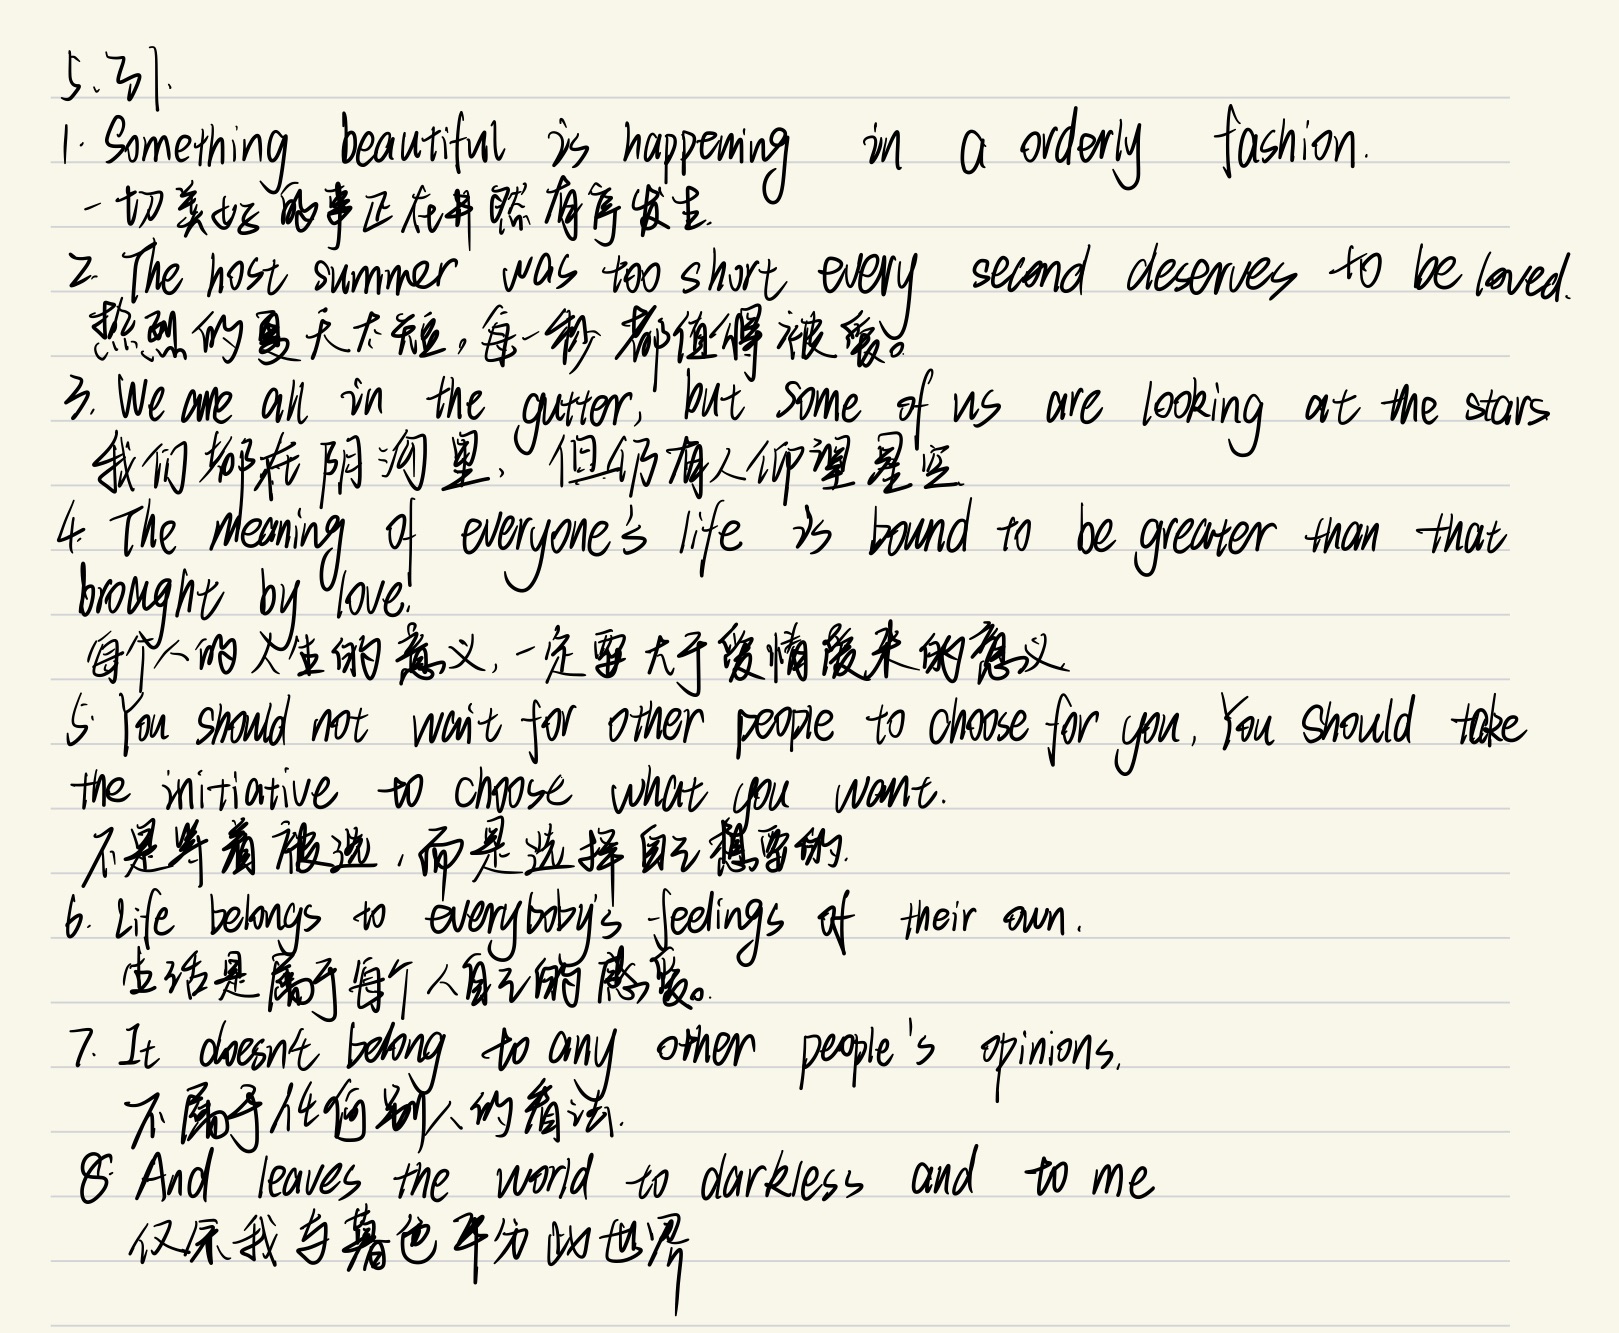 5.31.
1. Something beautiful is happening in a orderly fashion.
一切美好的事正在井然有序发生.
2. The host summer was too short every second deserves to be loved.
热烈的夏天太短,每一秒都值得被爱。
3. We are all in the gutter, but some of us are looking at the stars
我们都在阴沟里, 但仍有人仰望星空
4. The meaning of everyone's life is bound to be greater than that
brought by love.
每个人的人生的意义,一定要大于爱情爱来的意义
5. You should not wait for other people to choose for you, You should take
the initiative to choose what you want.
不是等着被选,而是选择自己想要的.
6. Life belongs to everyboby's feelings of their own.
生活是属于每个人自己的感受。
7. It doesn't belong to any other people's opinions.
不属于任何别人的看法.
8. And leaves the world to darkless and to me
仅余我与暮色平分此世界